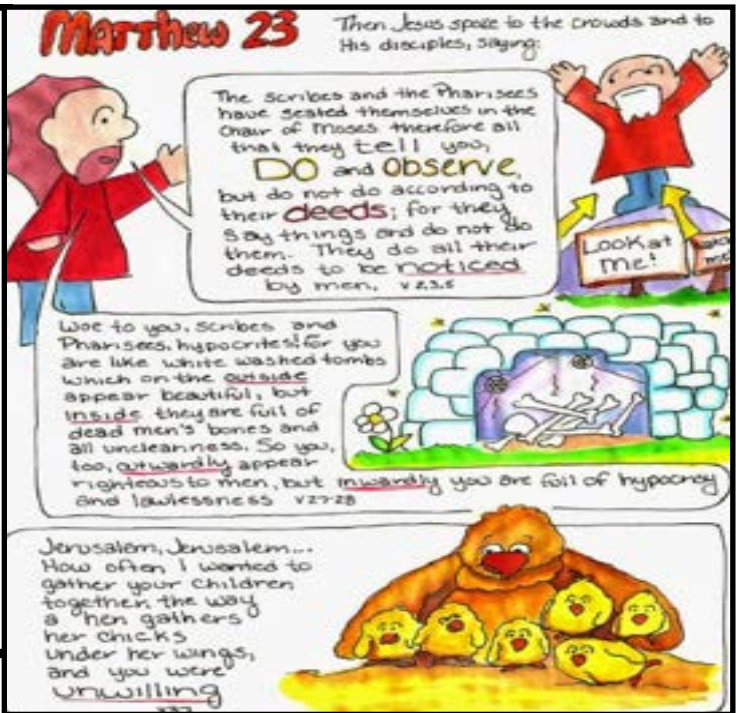 Matthew 23
Then Jesus spoke to the crowds and to
His disciples, saying:
The scribes and the Pharisees
have seated themselves in the
Chair of Moses therefore all
that they tell you,
DO and OBSERVE,
but do not do according to
their deeds; for they
say things and do not do
them. They do all their
deeds to be noticed
by men. v 2,3,5
Look at
me!
me!
Woe to you, scribes and
Pharisees, hypocrites! for you
are like white washed tombs
which on the outside
appear beautiful, but
inside they are full of
dead men's bones and
all uncleanness. So you,
too, outwardly appear
righteous to men, but inwardly you are full of hypocrisy
and lawlessness v27-28
Jerusalem, Jerusalem...
How often I wanted to
gather your children
together, the way
a hen gathers
her chicks
under her wings,
and you were
unwilling